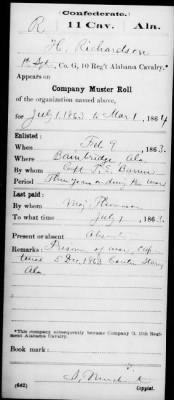 Confederate.
R 11 Cav. Ala.
H. Richardson
1st Sgt, Co. G, 10 Reg't Alabama Cavalry.*
Appears on
Company Muster Roll
of the organization named above,
for July 1, 1863 to Mar 1, 1864
Enlisted:
When Feb 9, 1863.
Where Bainbridge, Ala
By whom Capt.
Period Three years or during the war
Last paid:
By whom Maj.
To what time July 1, 1863.
Present or absent Absent
Remarks: Prison of war, cap
tured 5 Dec, 1863
Ala.
*This company subsequently became Company G, 11th Regiment Alabama Cavalry.
Book mark:
(642) Copyist.